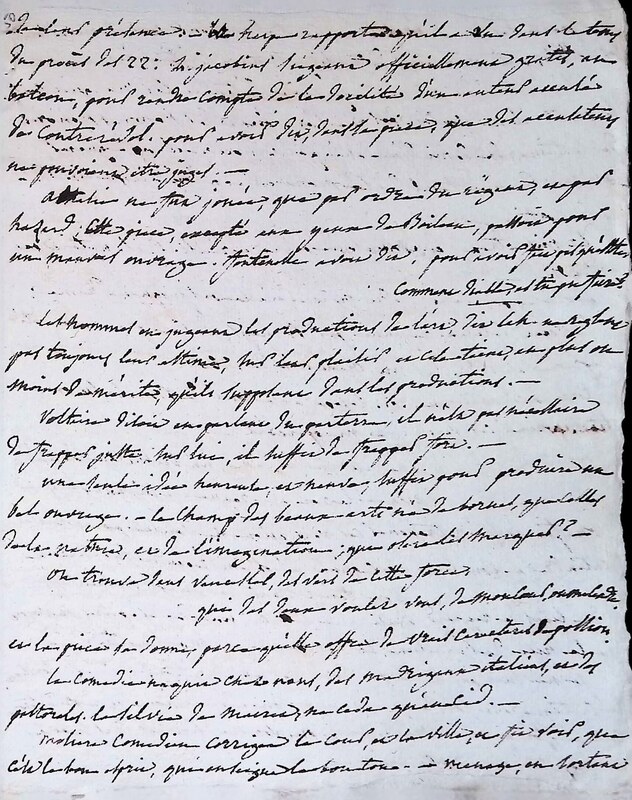 dans présence. — la harpe rapporte qu'il a vu dans le tems
du procès des 22: les jacobins jugeans officiellement gratis, un
pour rendre compte de la d'un auteur accusé
de contrerévol. pour avoir dit, dans la piece, que des accusateurs
ne pouvoient être juges. —
athalie ne fut jouée, que par ordre du régent, et par
hazard; cette piece, excepté aux yeux de Boileau, passoit pour
un mauvais ouvrage. fontenelle avoit dit, pour avoir fait pis qu'esther,
comment diable as tu pu faire?
les hommes en jugeant les productions de l'art, dit leh. ne reglent
pas toujours leur estime, sur leur plaisir et celui en plus ou
moins de mérite, qu'ils supposent dans les productions. —
Voltaire disoit en parlant du parterre, il n'est pas nécessaire
de frapper juste, sur lui, il suffit de frapper fort. —
une seule idée heureuse, et neuve, suffit pour produire un
bel ouvrage. — le champ des beaux arts n'a de bornes, que celles
de la nature, et de l'imagination; qui osera les marquer? —
on trouve dans venceslas, des vers de cette force
qui des deux voulez vous, de mon cœur ou ma
et la piece donne, parce qu'elle offre de vrais caracteres de passion
la comedie naquit chez nous, des madrigaux italiens, et des
pastorales. la silvie de mairet, ne cede qu'au cid. —
moliere comedien corrigea la cour, et la ville, et fit voir, que
c'est le bon esprit, qui enseigne le bon ton. — menage, en sortant